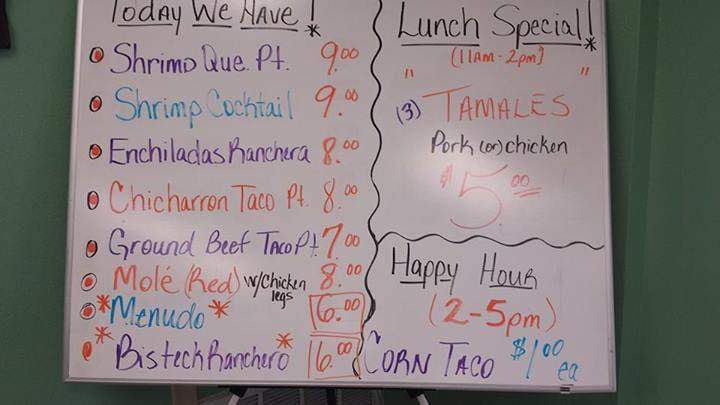 Today We Have! *
Shrimp Que. Pt. 9.00
Shrimp Cocktail 9.00
Enchiladas Ranchera 8.00
Chicharron Taco Pt. 8.00
Ground Beef Taco Pt 7.00
Molé (Red) w/chicken legs 8.00
*Menudo* 6.00
*Bisteck Ranchero* 6.00
Lunch Special! *
" (11AM-2pm) "
(3) TAMALES
Pork (or) chicken
$5.00
Happy Hour
(2-5pm)
CORN TACO $1.00 ea